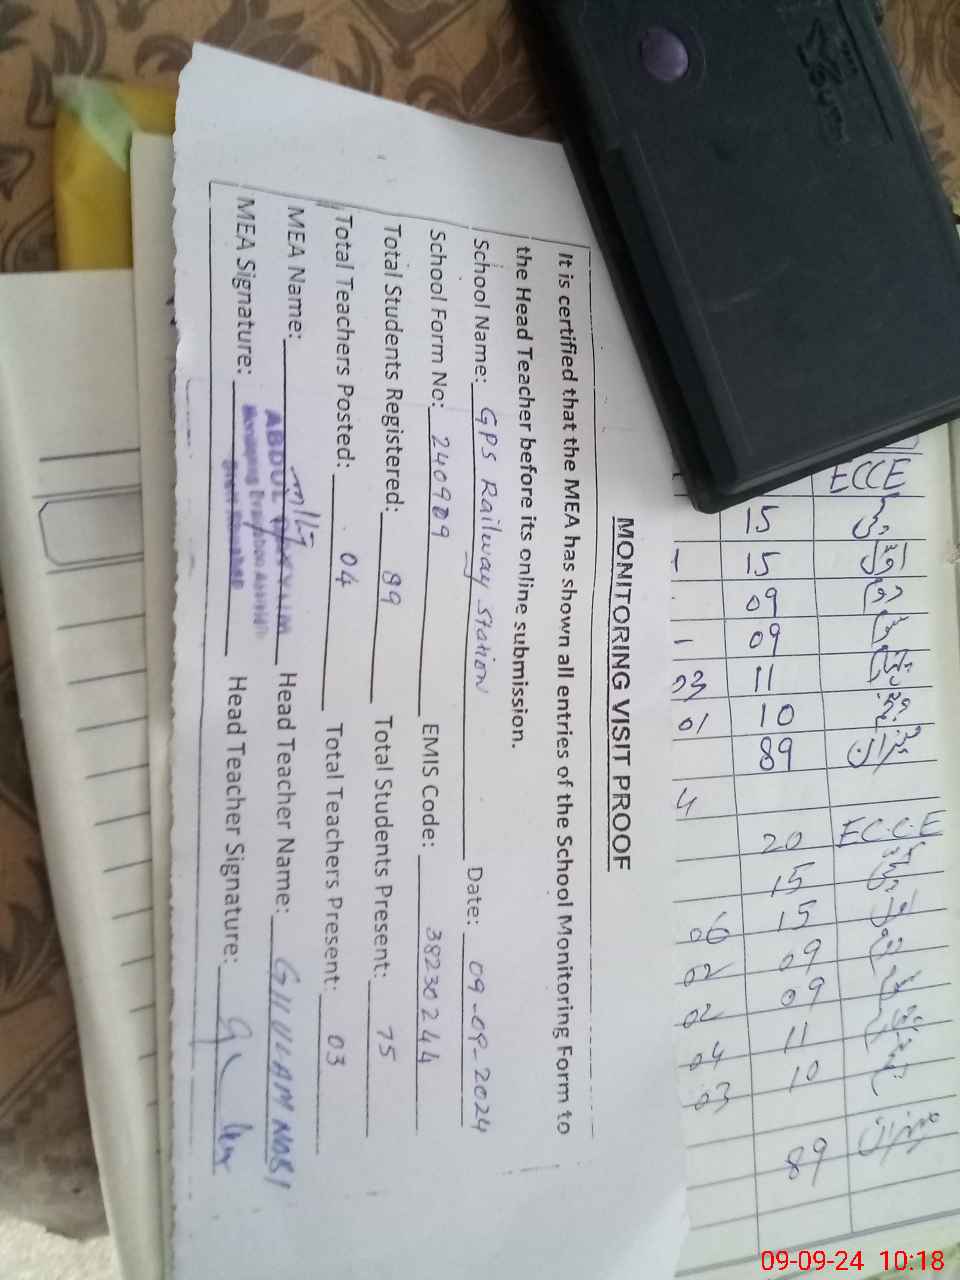 MONITORING VISIT PROOF
It is certified that the MEA has shown all entries of the School Monitoring Form to
the Head Teacher before its online submission.
School Name: GPS Railway Station Date: 09-09-2024
School Form No: 240909 EMIS Code: 38230244
Total Students Registered: 89 Total Students Present: 75
Total Teachers Posted: 04 Total Teachers Present: 03
MEA Name: ABDUL Head Teacher Name: GHULAM NABI
MEA Signature: Head Teacher Signature:
ECCE
15
15
09
09
03 11
01 10
89 میزان
4
20 ECCE
15
06 15
02 09
02 09
04 11
03 10
89 میزان
09-09-24 10:18